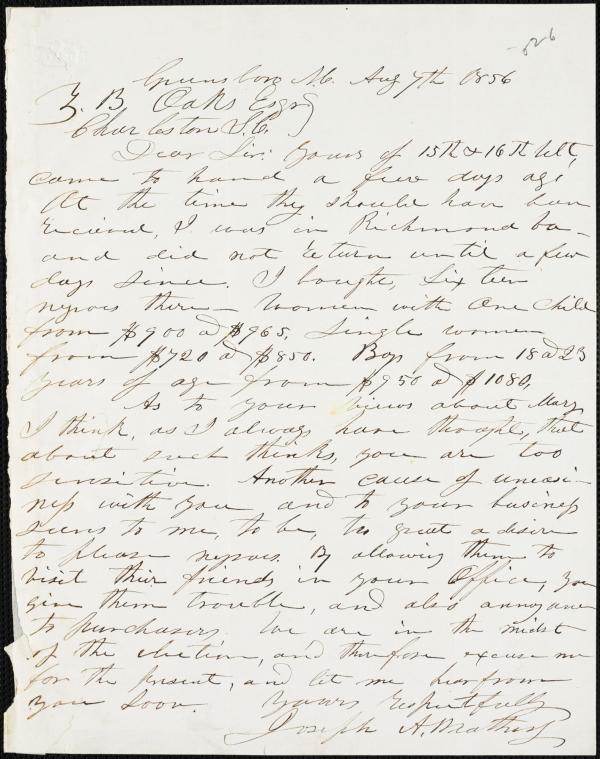 -526
Greensboro N.C. Aug 7th 1856
Z. B. Oaks Esqr
Charleston S.C.
Dear Sir: Yours of 15th & 16th ult,
came to hand a few days ago
At the time they should have been
recieved, I was in Richmond Va-
and did not return until a few
days since. I bought, Sixteen
negroes there - women with One Child
from $900 a $965, Single women
from $720 a $850. Boys from 18 a 23
years of age from $950 a $1080,
As to your views about Mary
I think, as I always have thought, that
about such thinks, you are too
sensitive. Another cause of uneasi-
ness with you and to your business
seems to me, to be, too great a desire
to please negroes. By allowing them to
visit their friends in your Office, you
give them trouble, and also annoyance
to purchasers. We are in the midst
of the election, and therefore excuse me
for the present, and let me hear from
you soon. Yours respectfully
Joseph A.